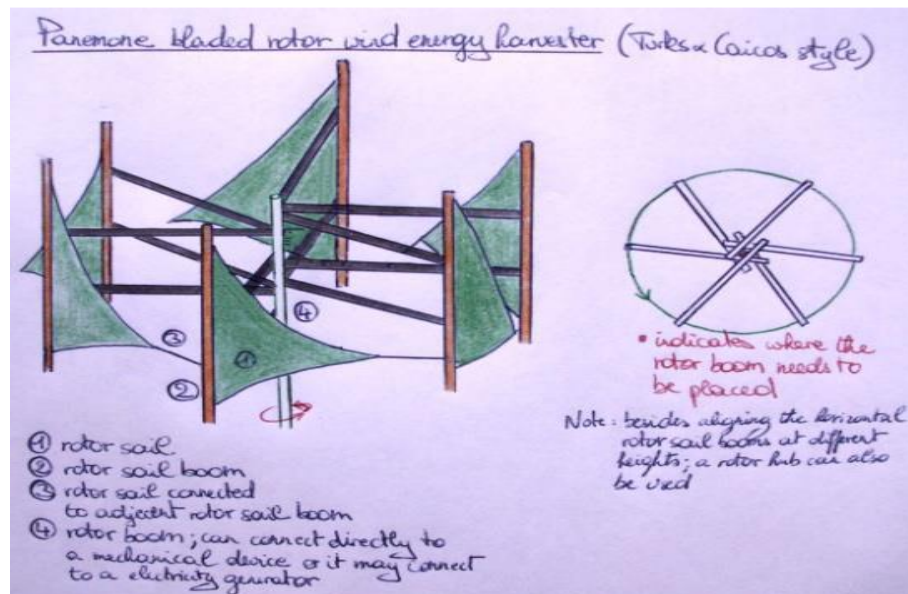 Panemone bladed rotor wind energy harvester (Turks & Caicos style)
④
③
①
②
• indicates where the
rotor boom needs to
be placed
Note: besides aligning the horizontal
rotor sail booms at different
heights; a rotor hub can also
be used
① rotor sail
② rotor sail boom
③ rotor sail connected
to adjacent rotor sail boom
④ rotor boom; can connect directly to
a mechanical device or it may connect
to a electricity generator